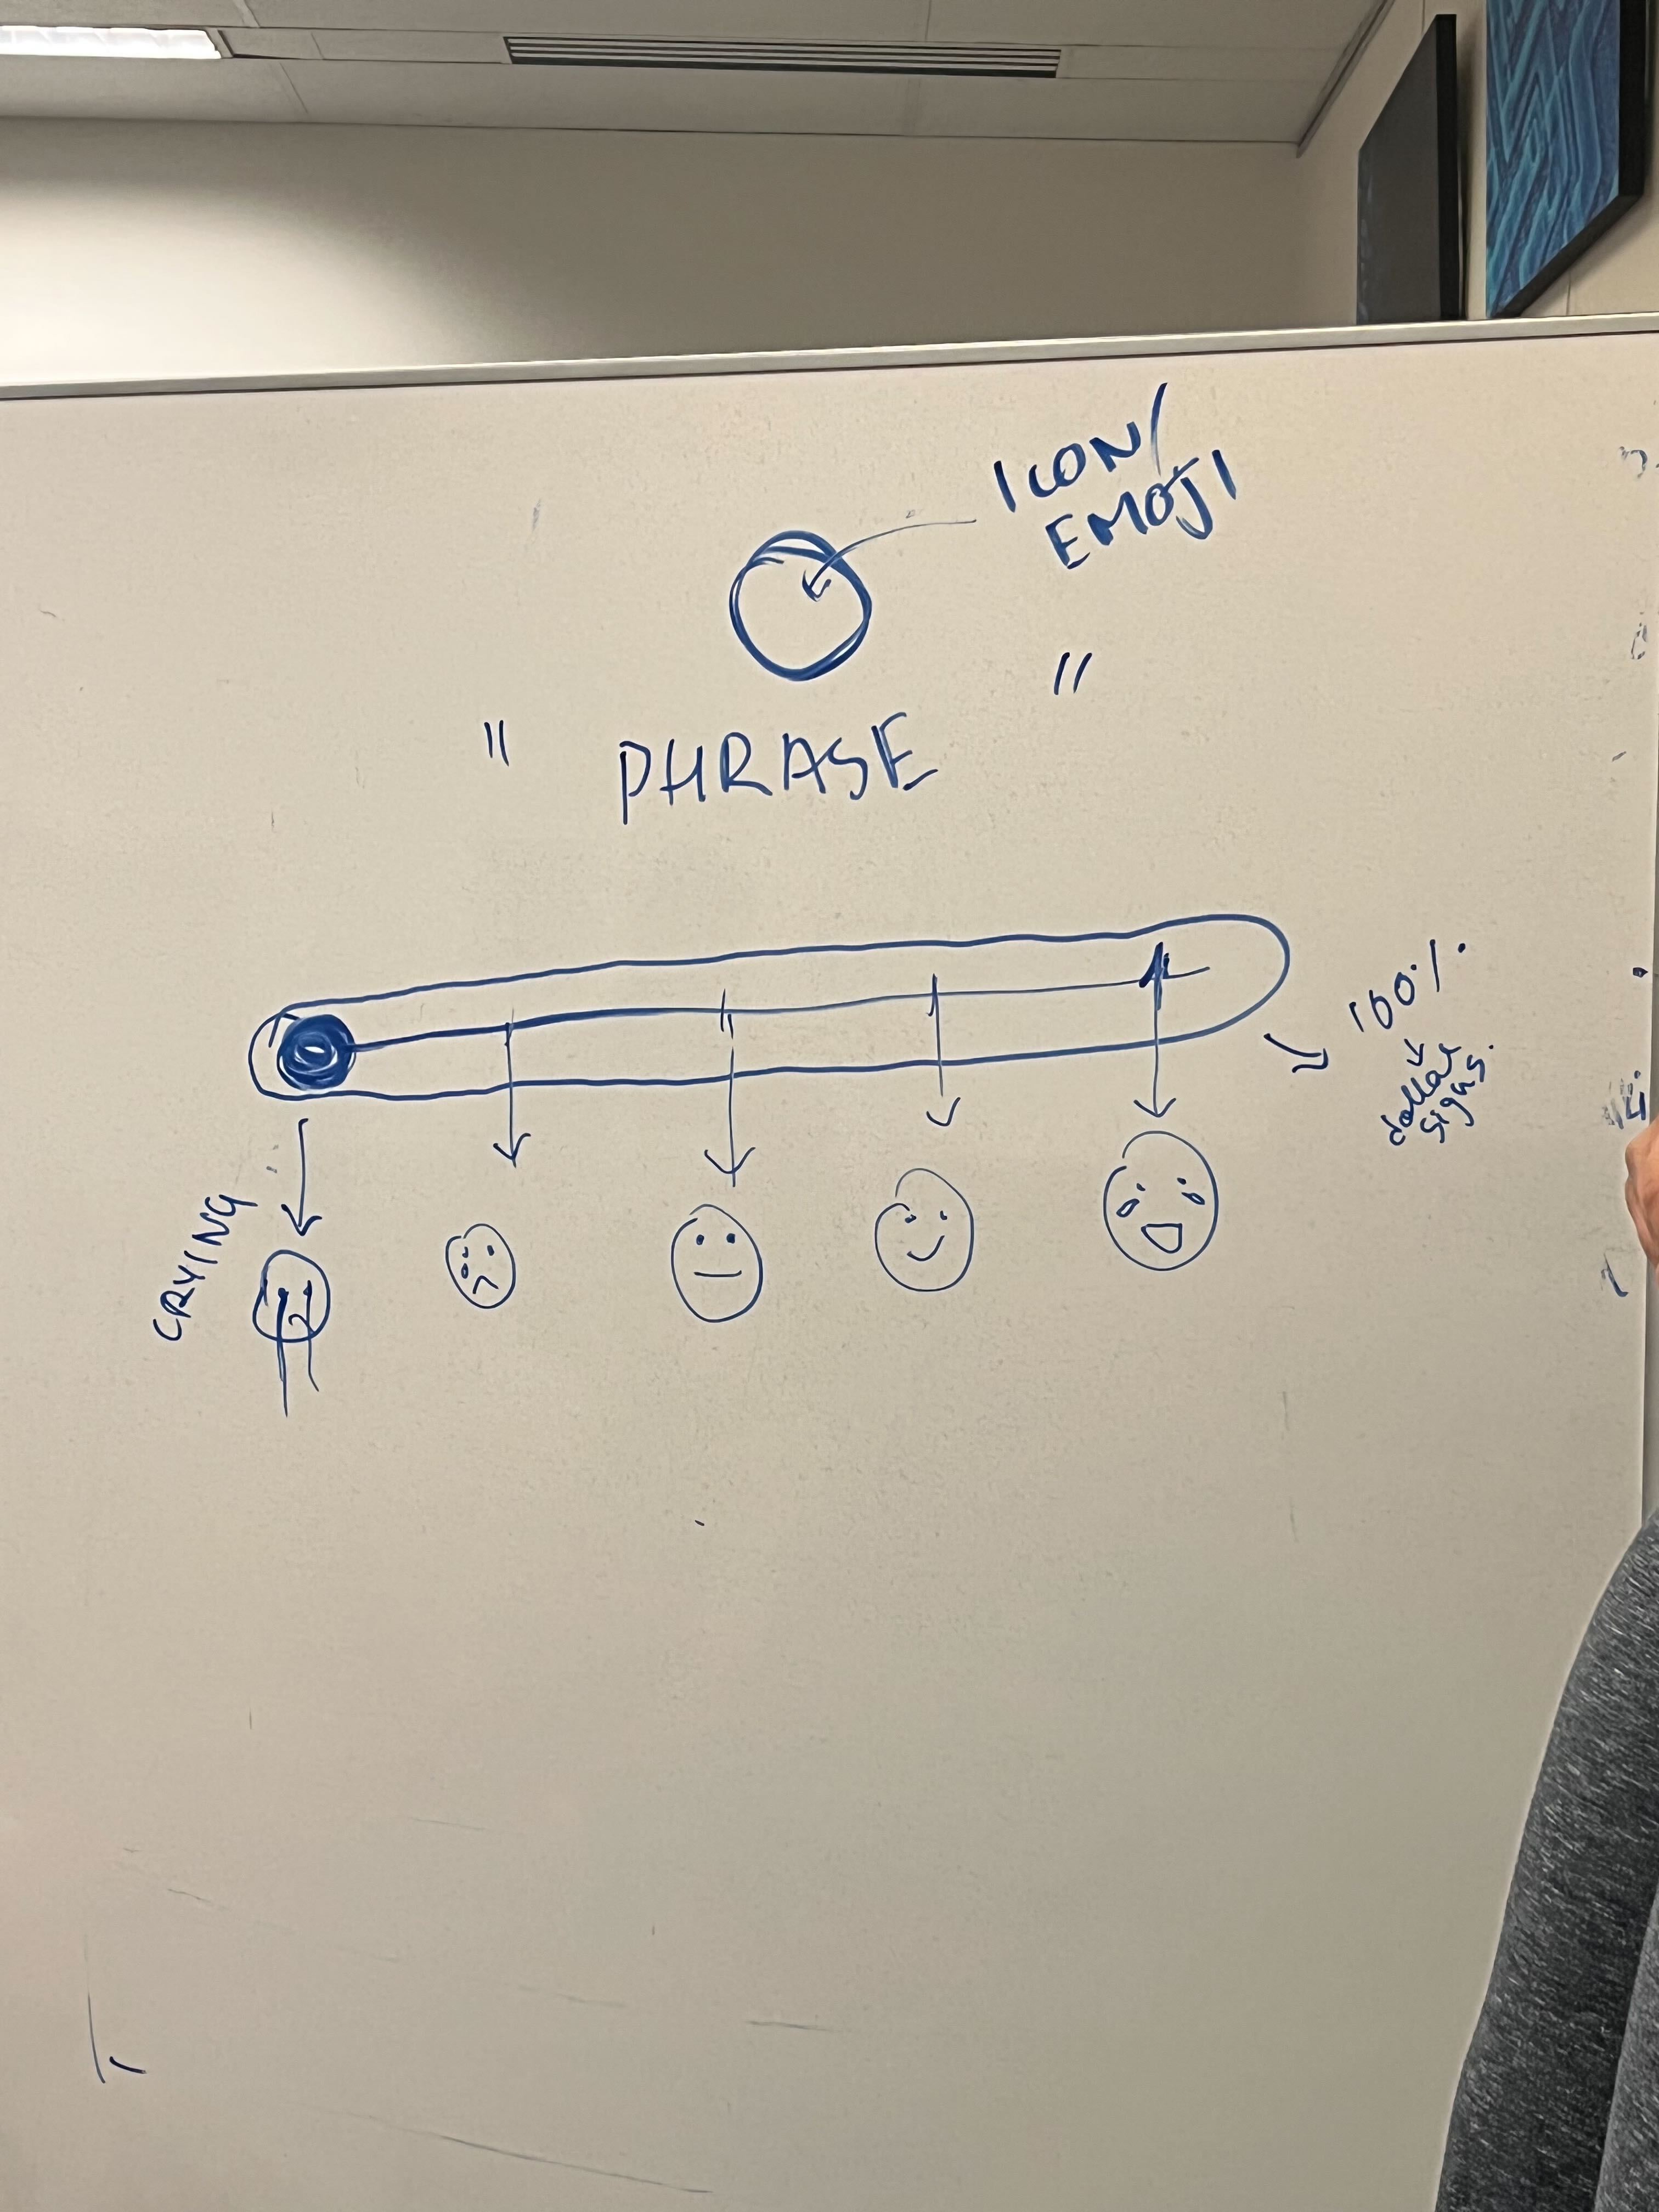 ICON/
EMOJI
" PHRASE "
100%
dollar
signs.
CRYING